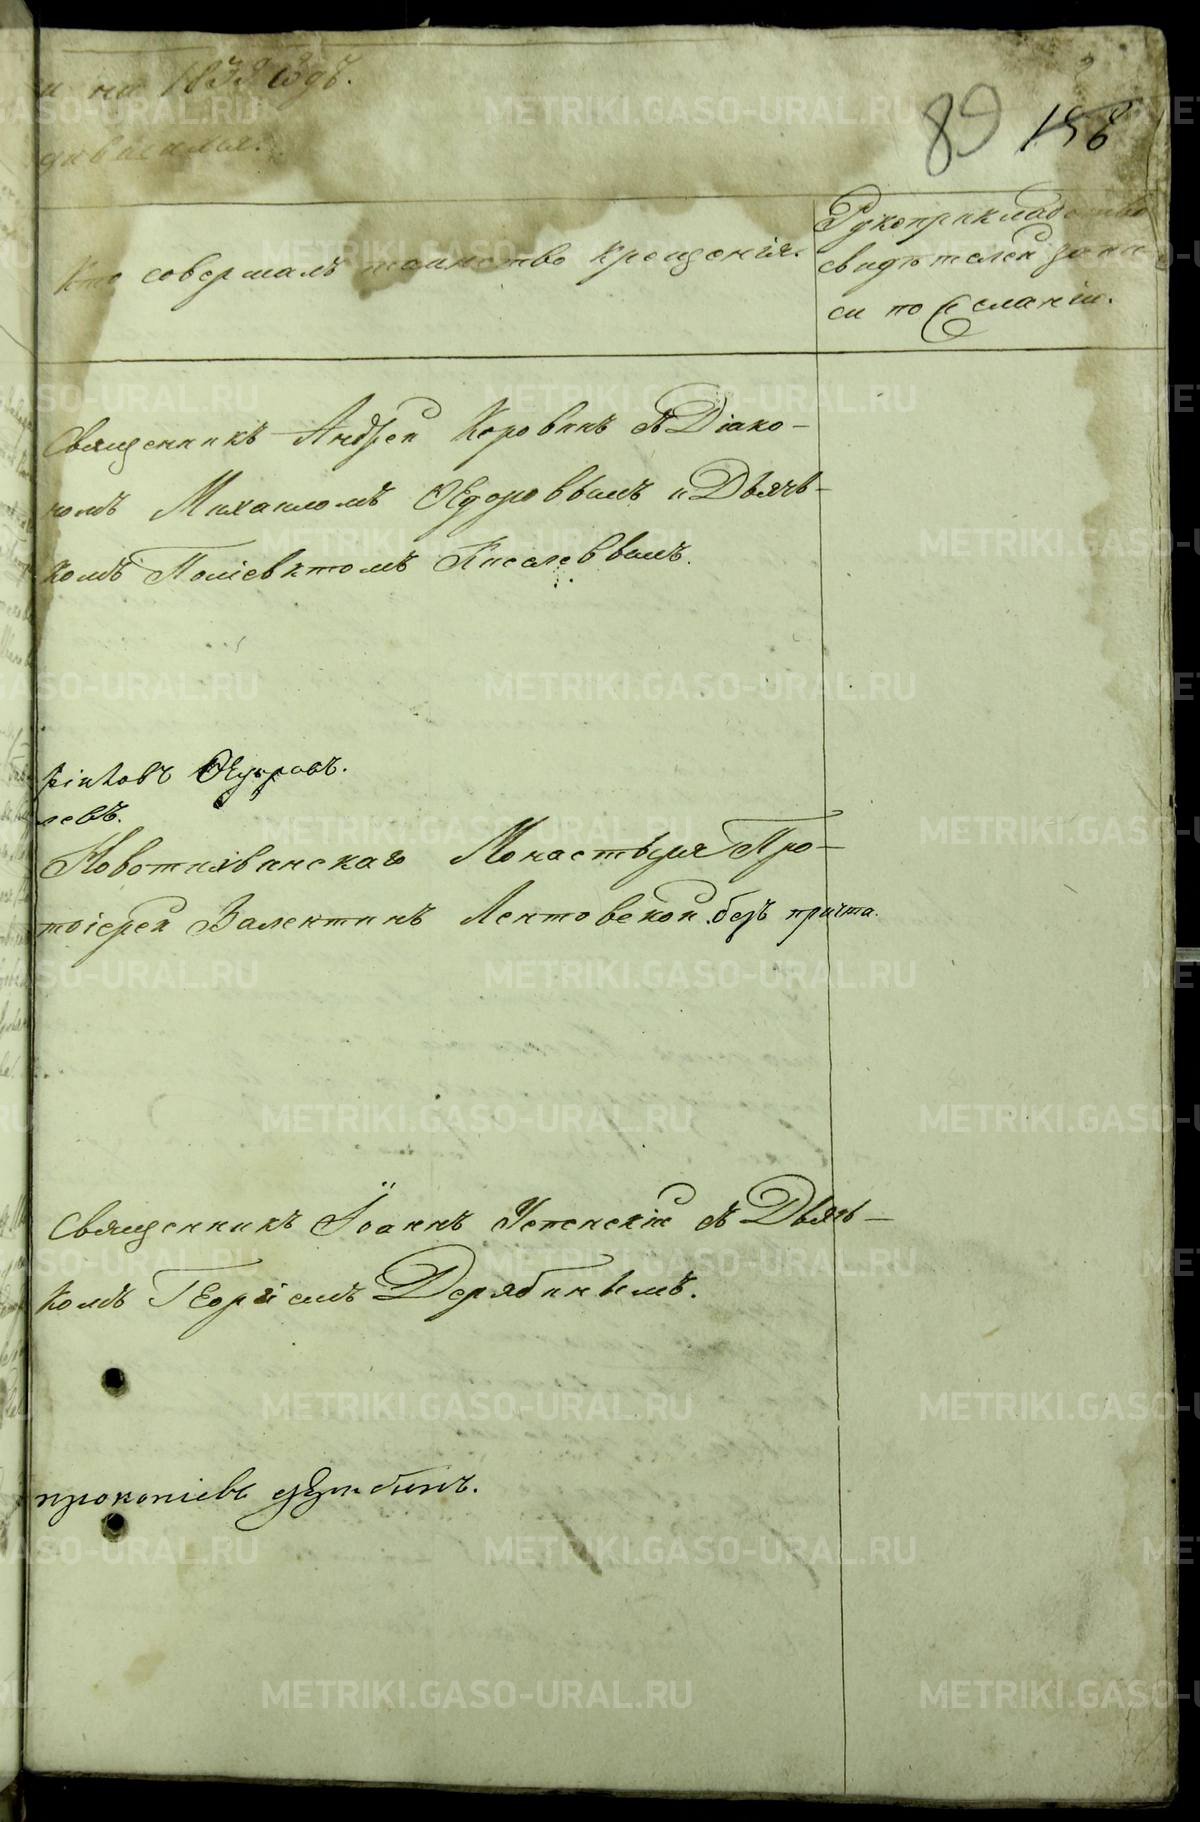 и на 1838 годъ.
89 158
Кто совершалъ таинство крещенія.
Рукоприкладство
свидѣтелей запи
си по желанію.
Священникъ Андрей Коровинъ съ Діако-
номъ Михаиломъ Ѳедоровымъ и Дьячь-
комъ Поліевктомъ Киселеввымъ.
Ѳедоровъ.
левъ.
Новотихвинскаго Монастыря Про-
тоіерей Валентинъ Лентовской безъ причта.
Священникъ Іоаннъ Успенскій съ Дьячь-
комъ Георгіемъ Дерябинымъ.
прокопіевъ дерябинъ.
METRIKI.GASO-URAL.RU